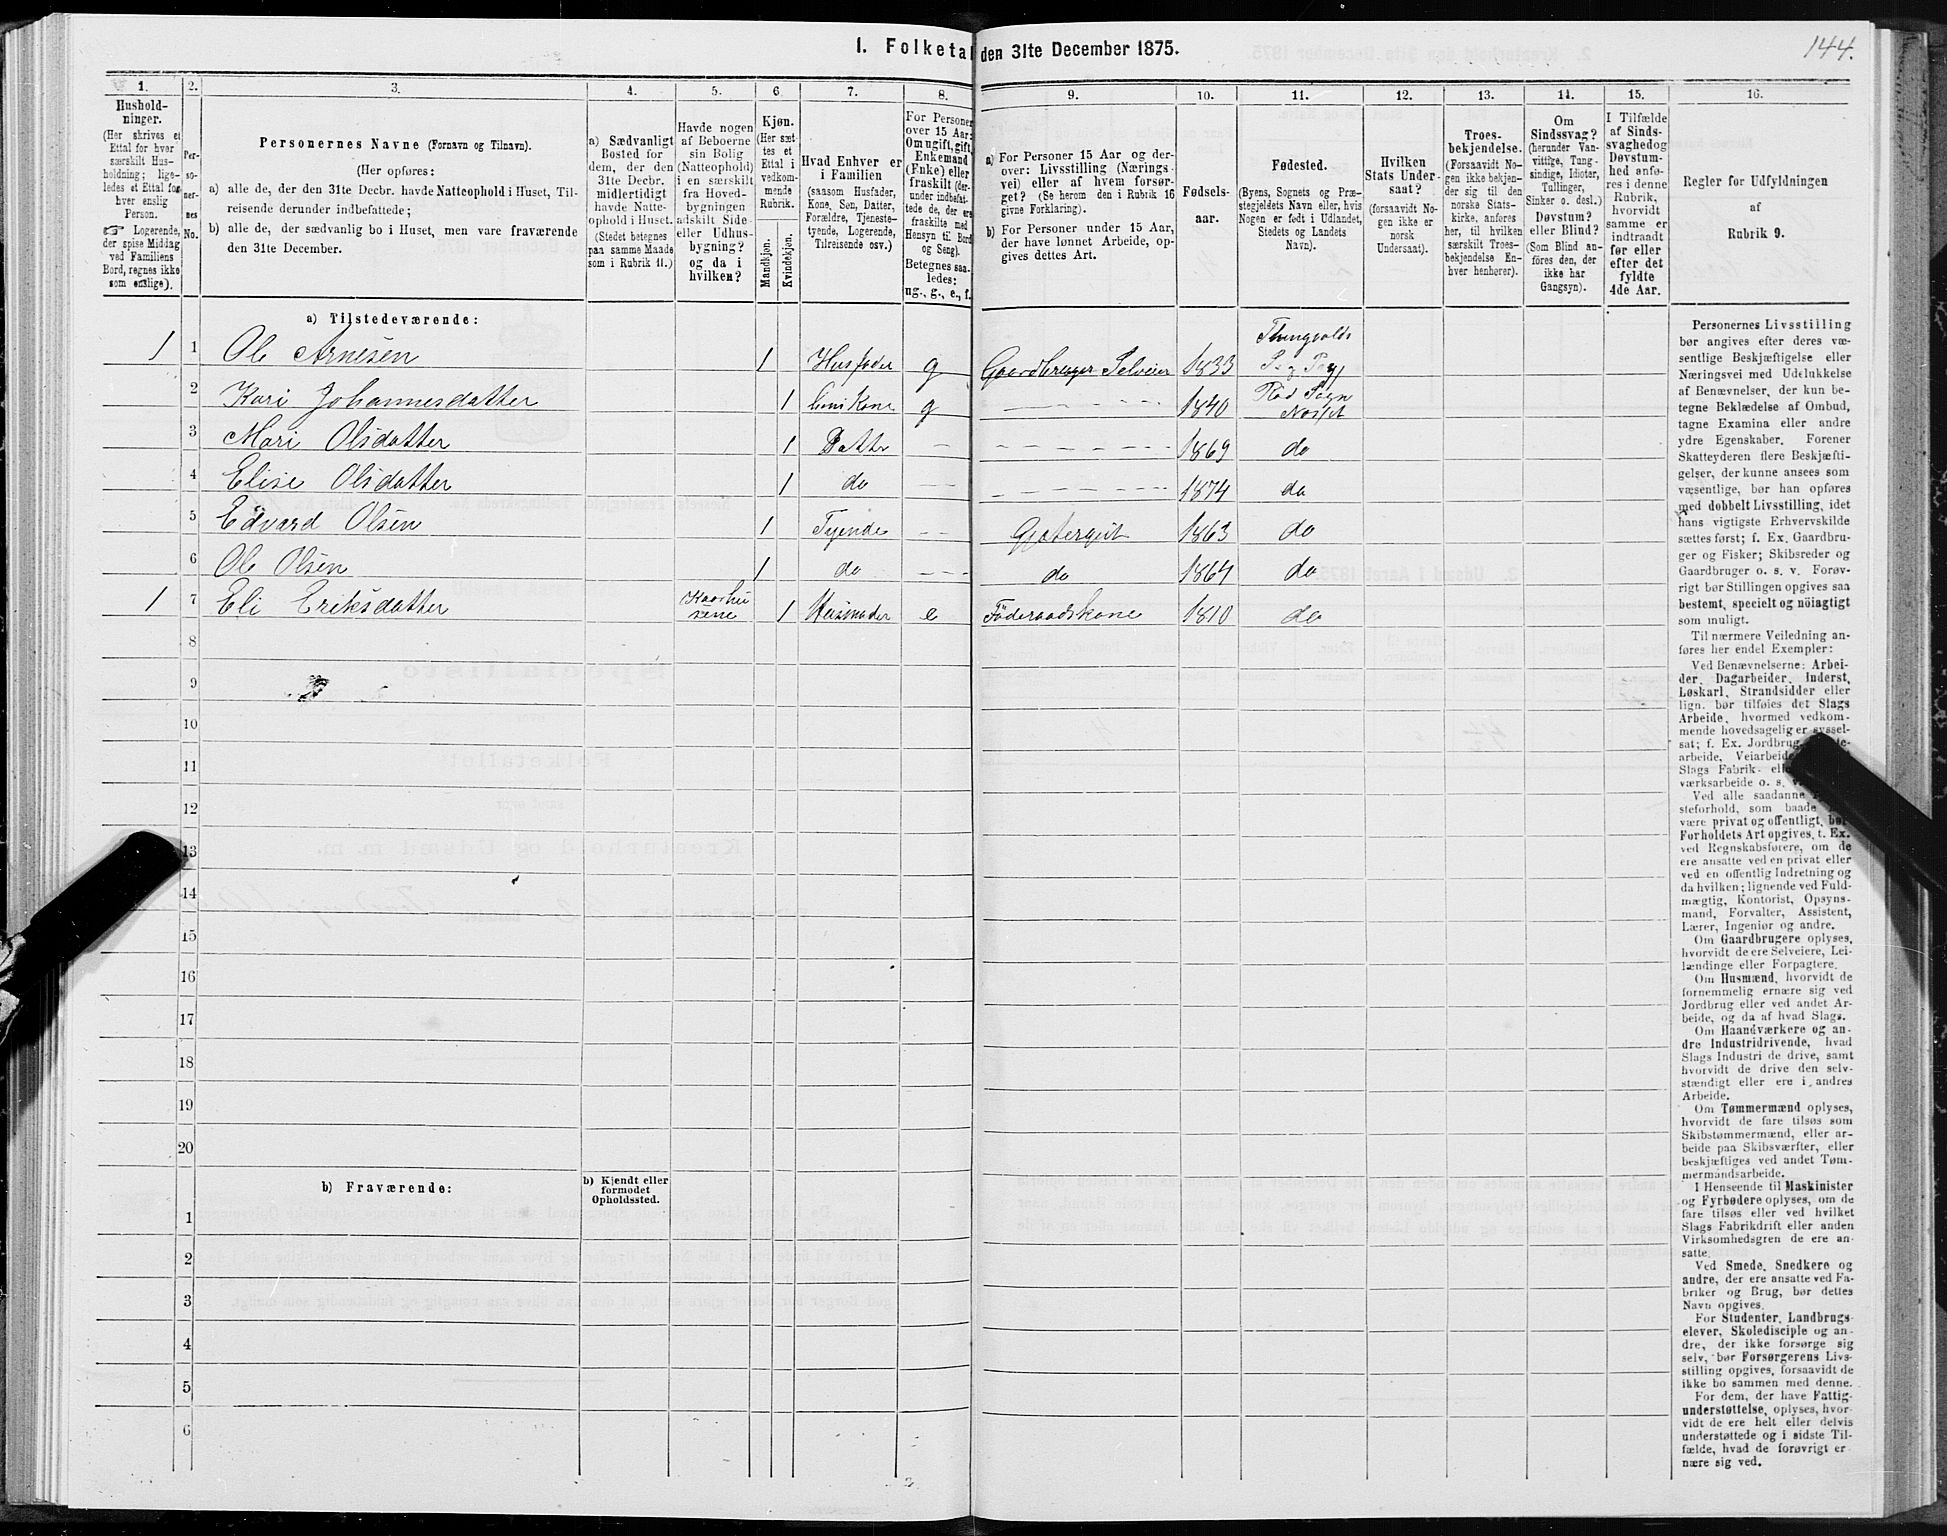 1. Folketal den 31te December 1875.
144.
1. 2. 3. 4. 5. 6. 7. 8. 9. 10. 11. 12. 13. 14. 15. 16.
Husholdninger.
(Her skrives et
Ettal for hver
særskilt Husholdning;
ligeledes et Ettal for
hver enslig
Person.
☞ Logerende,
der spise Middag
ved Familiens
Bord, regnes ikke
som enslige).
Personernes No.
Personernes Navne (Fornavn og Tilnavn).
(Her opføres:
a) alle de, der den 31te Decbr. havde Natteophold i Huset, Tilreisende derunder indbefattede;
b) alle de, der sædvanlig bo i Huset, men vare fraværende
den 31te December.
a) Sædvanligt
Bosted for
dem, der den
31te Decbr.
midlertidigt
havde Natteophold i Huset.
(Stedet betegnes
paa samme Maade
som i Rubrik 11.)
Havde nogen
af Beboerne
sin Bolig
(Natteophold)
i en særskilt
fra Hovedbygningen
adskilt Side-
eller Udhusbygning?
og da i
hvilken?
Kjøn.
(Her sættes et
Ettal i
vedkommende
Rubrik.
Mandkjøn.
Kvindekjøn.
Hvad Enhver er
i Familien
(saasom Husfader,
Kone, Søn, Datter,
Forældre, Tjenestetyende, Logerende,
Tilreisende osv.)
For Personer
over 15 Aar:
Om ugift, gift,
Enkemand
(Enke) eller
fraskilt (derunder indbefattede de, der ere
fraskilte med
Hensyn til Bord
og Seng).
Betegnes saaledes:
ug., g., e., f.
a) For Personer 15 Aar og derover: Livsstilling (Næringsvei) eller af hvem forsørget? (Se herom den i Rubrik 16
givne Forklaring).
b) For Personer under 15 Aar,
der have lønnet Arbeide, opgives dettes Art.
Fødselsaar.
Fødested.
(Byens, Sognets og Præstegjeldets Navn eller, hvis
Nogen er født i Udlandet,
Stedets og Landets
Navn).
Hvilken
Stats Undersaat?
(forsaavidt Nogen ikke er
norsk
Undersaat).
Troesbekjendelse.
(Forsaavidt Nogen ikke bekjender sig til den
norske Statskirke, anføres
her, til hvilken
særskilt Troesbekjendelse Enhver henhører).
Om
Sindssvag?
(herunder Vanvittige, Tungsindige, Idioter,
Tullinger,
Sinker o. desl.)
Døvstum?
eller Blind?
(Som Blind anføres den, der
ikke har
Gangsyn).
I Tilfælde
af Sindssvaghed og
Døvstumhed anføres i denne
Rubrik,
hvorvidt
samme er
indtraadt
før eller
efter det
fyldte
4de Aar.
Regler for Udfyldningen
af
Rubrik 9.
a) Tilstedeværende:
1 1 Ole Arnesen 1 Husfader g Gaardbruger Selveier 1833 Thingvolds
2 Kari Johannesdatter 1 Kone g 1840 Rød Sogn Nesset
3 Mari Olsdatter 1 Datter 1869 do
4 Elise Olsdatter 1 do 1874 do
5 Edvard Olsen 1 Tyende Gjetergut 1863 do
6 Ole Olsen 1 do do 1864 do
1 7 Eli Eriksdatter 1 Husmoder e Föderaadskone 1810 do
8
9
10
11
12
13
14
15
16
17
18
19
20
b) Fraværende:
b) Kjendt eller
formodet
Opholdssted.
1
2
3
4
5
6
Personernes Livsstilling
bør angives efter deres væsentlige Beskjæftigelse eller
Næringsvei med Udelukkelse
af Benævnelser, der kun betegne Beklædelse af Ombud,
tagne Examina eller andre
ydre Egenskaber. Forener
Skatteyderen flere Beskjæftigelser, der kunne ansees som
væsentlige, bør han opføres
med dobbelt Livsstilling, idet
hans vigtigste Erhvervskilde
sættes først; f. Ex. Gaardbruger og Fisker; Skibsreder og
Gaardbruger o. s. v. Forøvrigt bør Stillingen opgives saa
bestemt, specielt og nöiagtigt
som muligt.
Til nærmere Veiledning anføres her endel Exempler:
Ved Benævnelserne: Arbeider, Dagarbeider, Inderst,
Løskarl, Strandsidder eller
lign. bør tilføies det Slags
Arbeide, hvormed vedkommende hovedsagelig er sysselsat; f. Ex. Jordbrug,
arbeide, Veiarbeide
Slags Fabrik-
værksarbeide o. s. v.
Ved alle saadanne
steforhold, som baade
være privat og offentligt, bør
Forholdets Art opgives, t. Ex.
ved Regnskabsførere, om de
ere ansatte ved en privat eller
ved en offentlig Indretning og
da hvilken; lignende ved Fuldmægtig, Kontorist, Opsynsmand, Forvalter, Assistent,
Lærer, Ingeniør og andre.
Om Gaardbrugere oplyses,
hvorvidt de ere Selveiere, Leilændinge eller Forpagtere.
Om Husmænd, hvorvidt de
fornemmelig ernære sig ved
Jordbrug eller ved andet Arbeide, og da af hvad Slags.
Om Haandværkere og andre Industridrivende, hvad
Slags Industri de drive, samt
hvorvidt de drive den selvstændigt eller ere i andres
Arbeide.
Om Tømmermænd oplyses,
hvorvidt de fare tilsøs som
Skibstømmermænd, eller arbeide paa Skibsværfter, eller
beskjæftiges ved andet Tømmermandsarbeide.
I Henseende til Maskinister
og Fyrbødere oplyses, om de
fare tilsøs eller ved hvilket
Slags Fabrikdrift eller anden
Virksomhedsgren de ere ansatte.
Ved Smede, Snedkere og
andre, der ere ansatte ved Fabriker og Brug, bør dettes
Navn opgives.
For Studenter, Landbrugselever, Skoledisciple og andre, der ikke forsørge sig
selv, bør Forsørgerens Livsstilling opgives, forsaavidt de
ikke bo sammen med denne.
For dem, der have Fattigunderstøttelse, oplyses, hvorvidt de ere helt eller delvis
understøttede og i sidste Tilfælde, hvad de forøvrigt ernære sig ved.